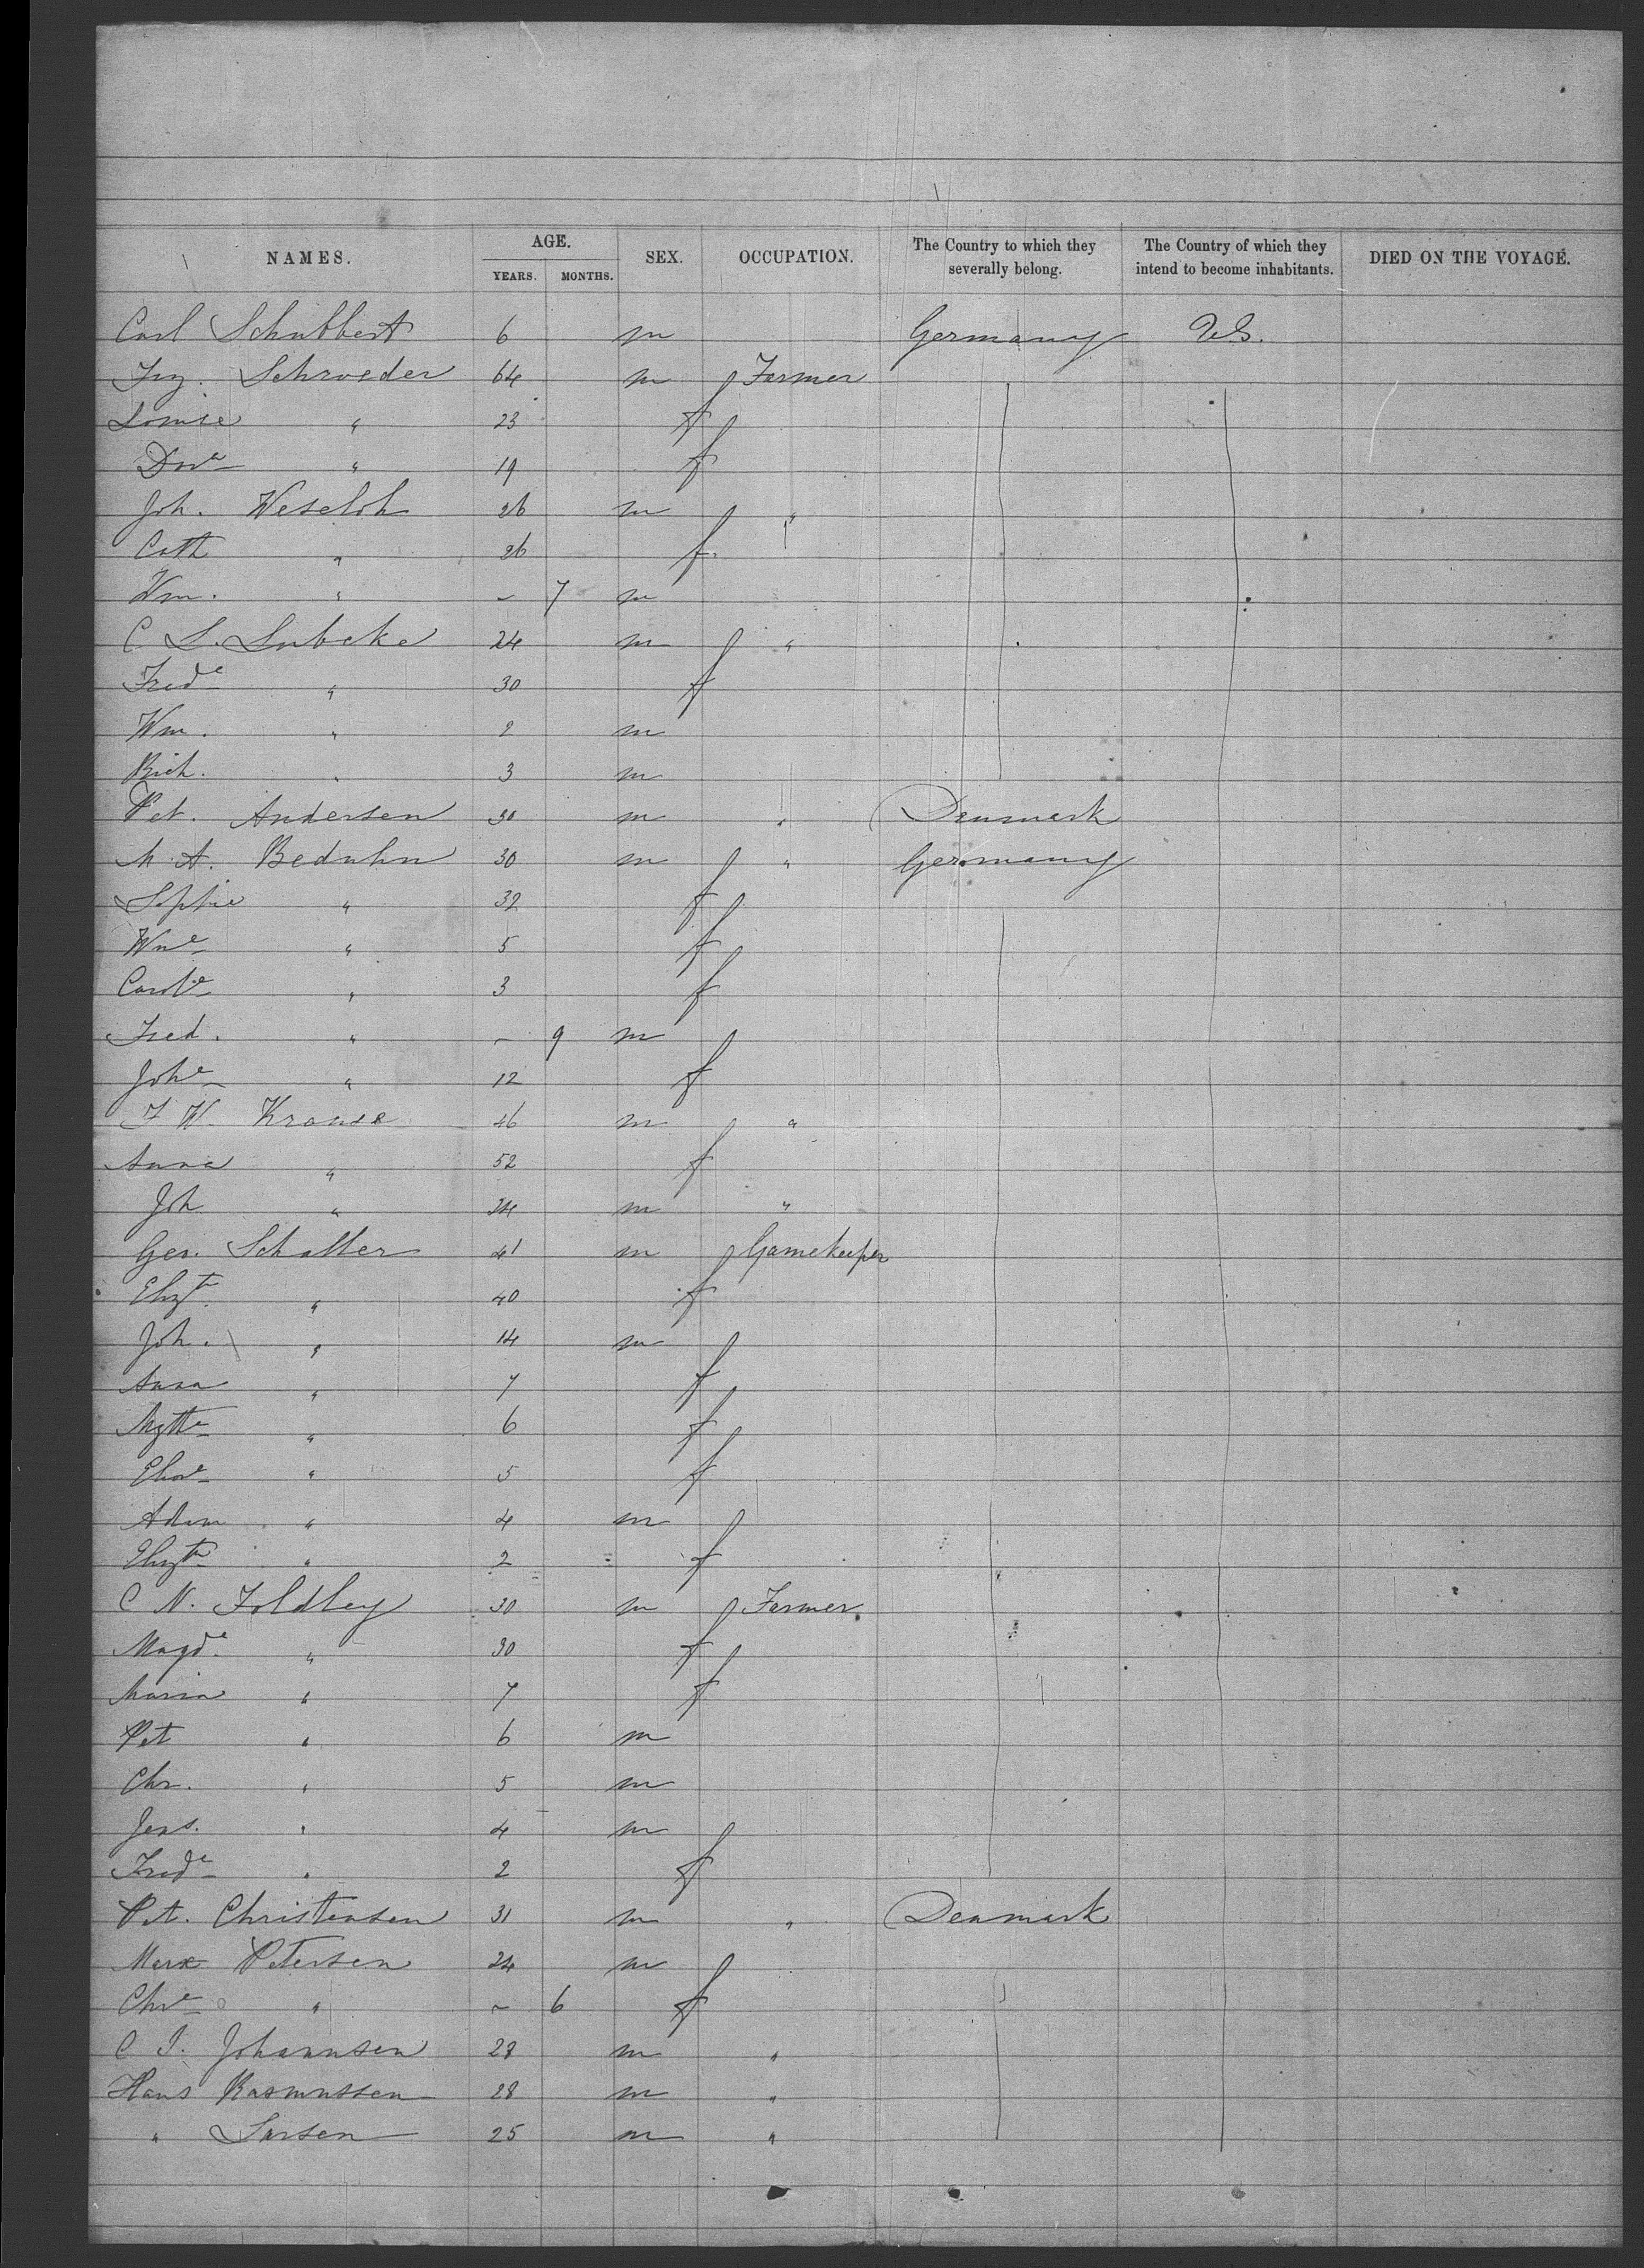 NAMES. AGE. SEX. OCCUPATION. The Country to which they severally belong. The Country of which they intend to become inhabitants. DIED ON THE VOYAGE.
YEARS. MONTHS.
Carl Schubbert 6 m Germany US.
Schroeder 64 m Farmer
Louise " 23 f
" 19 f
Joh. Weseloh 26 m "
Cath " 26 f
Wm. " - 7 m
C. L. Lubcke 24 m "
Frede " 30 f
Wm. " 2 m
Rich. " 3 m
Pet. Andersen 30 m " Denmark
M. A. Beduhn 30 m " Germany
Sophie " 32 f
Wme " 5 f
Carole " 3 f
Fred. " - 9 m
Johe " 12 f
F W. Krause 46 m "
Anna " 52 f
Joh " 24 m "
Geo. Schaller 41 m Gamekeeper
Elizth " 40 f
Joh. " 14 m
Anna " 7 f
" 6 f
" 5 f
Adam " 4 m
Elizth " 2 f
C N. Foldley 30 m Farmer
Magde " 30 f
Maria " 7 f
Pet " 6 m
Chr. " 5 m
Jens. " 4 m
Frede " 2 f
Pet. Christensen 31 m " Denmark
Petersen 24 m
Chre " - 6 f
C. J. Johannsen 28 m "
Hans Rasmussen 28 m "
" Larsen 25 m "